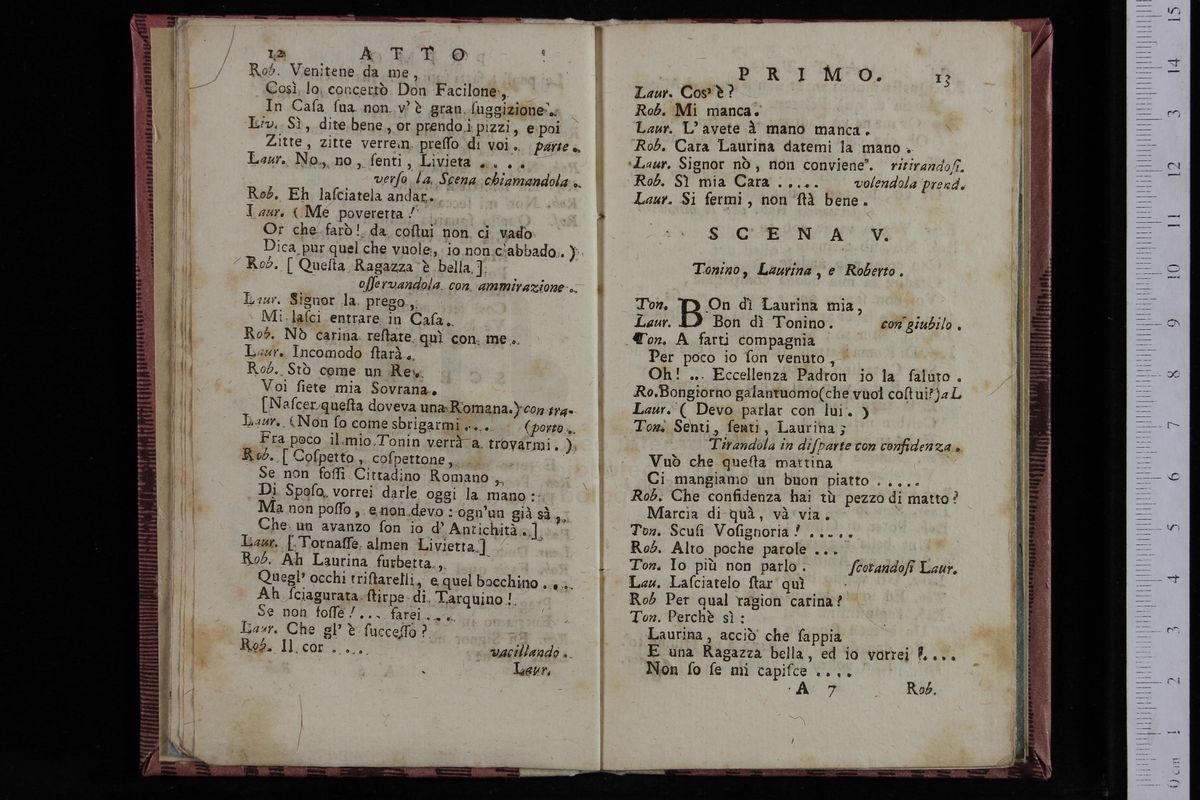 12 ATTO
Rob. Venitene da me,
Così lo concertò Don Facilone,
In Caſa ſua non v'è gran ſuggizione.
Liv. Sì, dite bene, or prendo i pizzi, e poi
Zitte, zitte verrem preſſo di voi. parte.
Laur. No, no, ſenti, Livieta ....
verſo la Scena chiamandola.
Rob. Eh laſciatela andar.
Laur. (Me poveretta!
Or che farò! da coſtui non ci vado
Dica pur quel che vuole, io non c'abbado.)
Rob. [Queſta Ragazza è bella.]
oſſervandola con ammirazione.
Laur. Signor la prego,
Mi laſci entrare in Caſa.
Rob. Nò carina reſtate quì con me.
Laur. Incomodo ſtarà.
Rob. Stò come un Re.
Voi ſiete mia Sovrana.
[Naſcer queſta doveva una Romana.) con tra-
Laur. (Non ſo come sbrigarmi .... (porto.
Fra poco il mio Tonin verrà a trovarmi.)
Rob. [Coſpetto, coſpettone,
Se non foſſi Cittadino Romano,
Di Spoſo vorrei darle oggi la mano:
Ma non poſſo, e non devo: ogn'un già sà,
Che un avanzo ſon io d'Antichità.]
Laur. [Tornaſſe almen Livietta.]
Rob. Ah Laurina furbetta,
Quegl' occhi triſtarelli, e quel bocchino ....
Ah ſciagurata ſtirpe di Tarquino!
Se non foſſe! ... farei ....
Laur. Che gl' è ſucceſſo?
Rob. Il cor ..... vacillando.
Laur.
PRIMO. 13
Laur. Cos' è?
Rob. Mi manca.
Laur. L'avete à mano manca.
Rob. Cara Laurina datemi la mano.
Laur. Signor nò, non conviene. ritirandoſi.
Rob. Sì mia Cara ..... volendola prend.
Laur. Si fermi, non ſtà bene.
SCENA V.
Tonino, Laurina, e Roberto.
Ton. BOn dì Laurina mia,
Laur. Bon dì Tonino. con giubilo.
Ton. A farti compagnia
Per poco io ſon venuto,
Oh! ... Eccellenza Padron io la ſaluto.
Ro. Bongiorno galantuomo (che vuol coſtui?) a L
Laur. (Devo parlar con lui.)
Ton. Senti, ſenti, Laurina;
Tirandola in diſparte con confidenza.
Vuò che queſta mattina
Ci mangiamo un buon piatto .....
Rob. Che confidenza hai tù pezzo di matto?
Marcia di quà, và via.
Ton. Scuſi Voſignoria! .....
Rob. Alto poche parole ...
Ton. Io più non parlo. ſcotandoſi Laur.
Lau. Laſciatelo ſtar quì
Rob Per qual ragion carina?
Ton. Perchè sì:
Laurina, acciò che ſappia
E una Ragazza bella, ed io vorrei !....
Non ſo ſe mi capiſce ....
A 7 Rob.